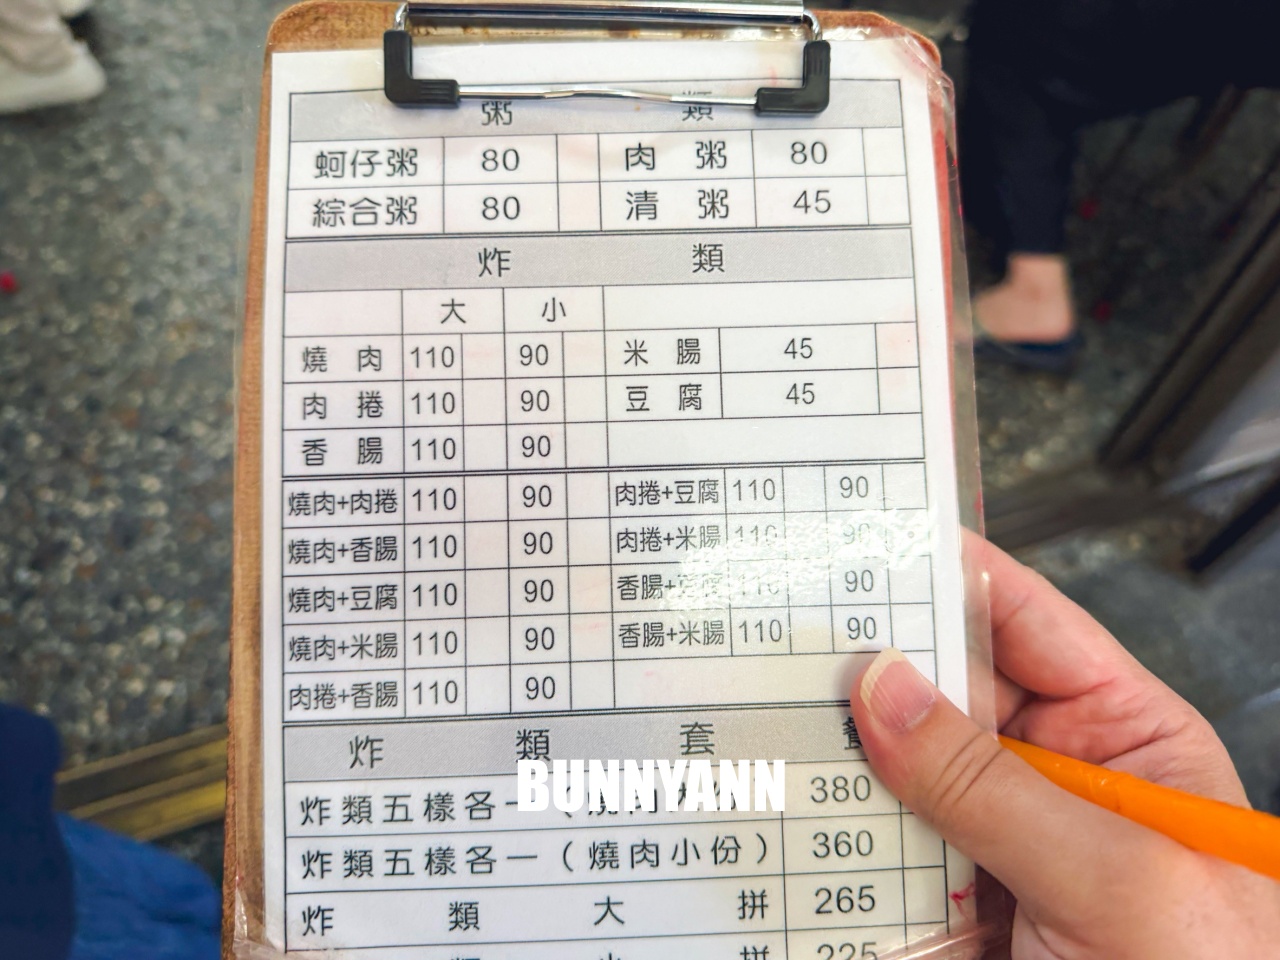 粥 類
蚵仔粥 80 肉粥 80
綜合粥 80 清粥 45
炸 類
大 小
燒肉 110 90 米腸 45
肉捲 110 90 豆腐 45
香腸 110 90
燒肉+肉捲 110 90 肉捲+豆腐 110 90
燒肉+香腸 110 90 肉捲+米腸 110 90
燒肉+豆腐 110 90 香腸+豆腐 110 90
燒肉+米腸 110 90 香腸+米腸 110 90
肉捲+香腸 110 90
炸 類 套
炸類五樣各一（燒肉大份 380
BUNNYANN
炸類五樣各一（燒肉小份） 360
炸類大拼 265
類小拼 225